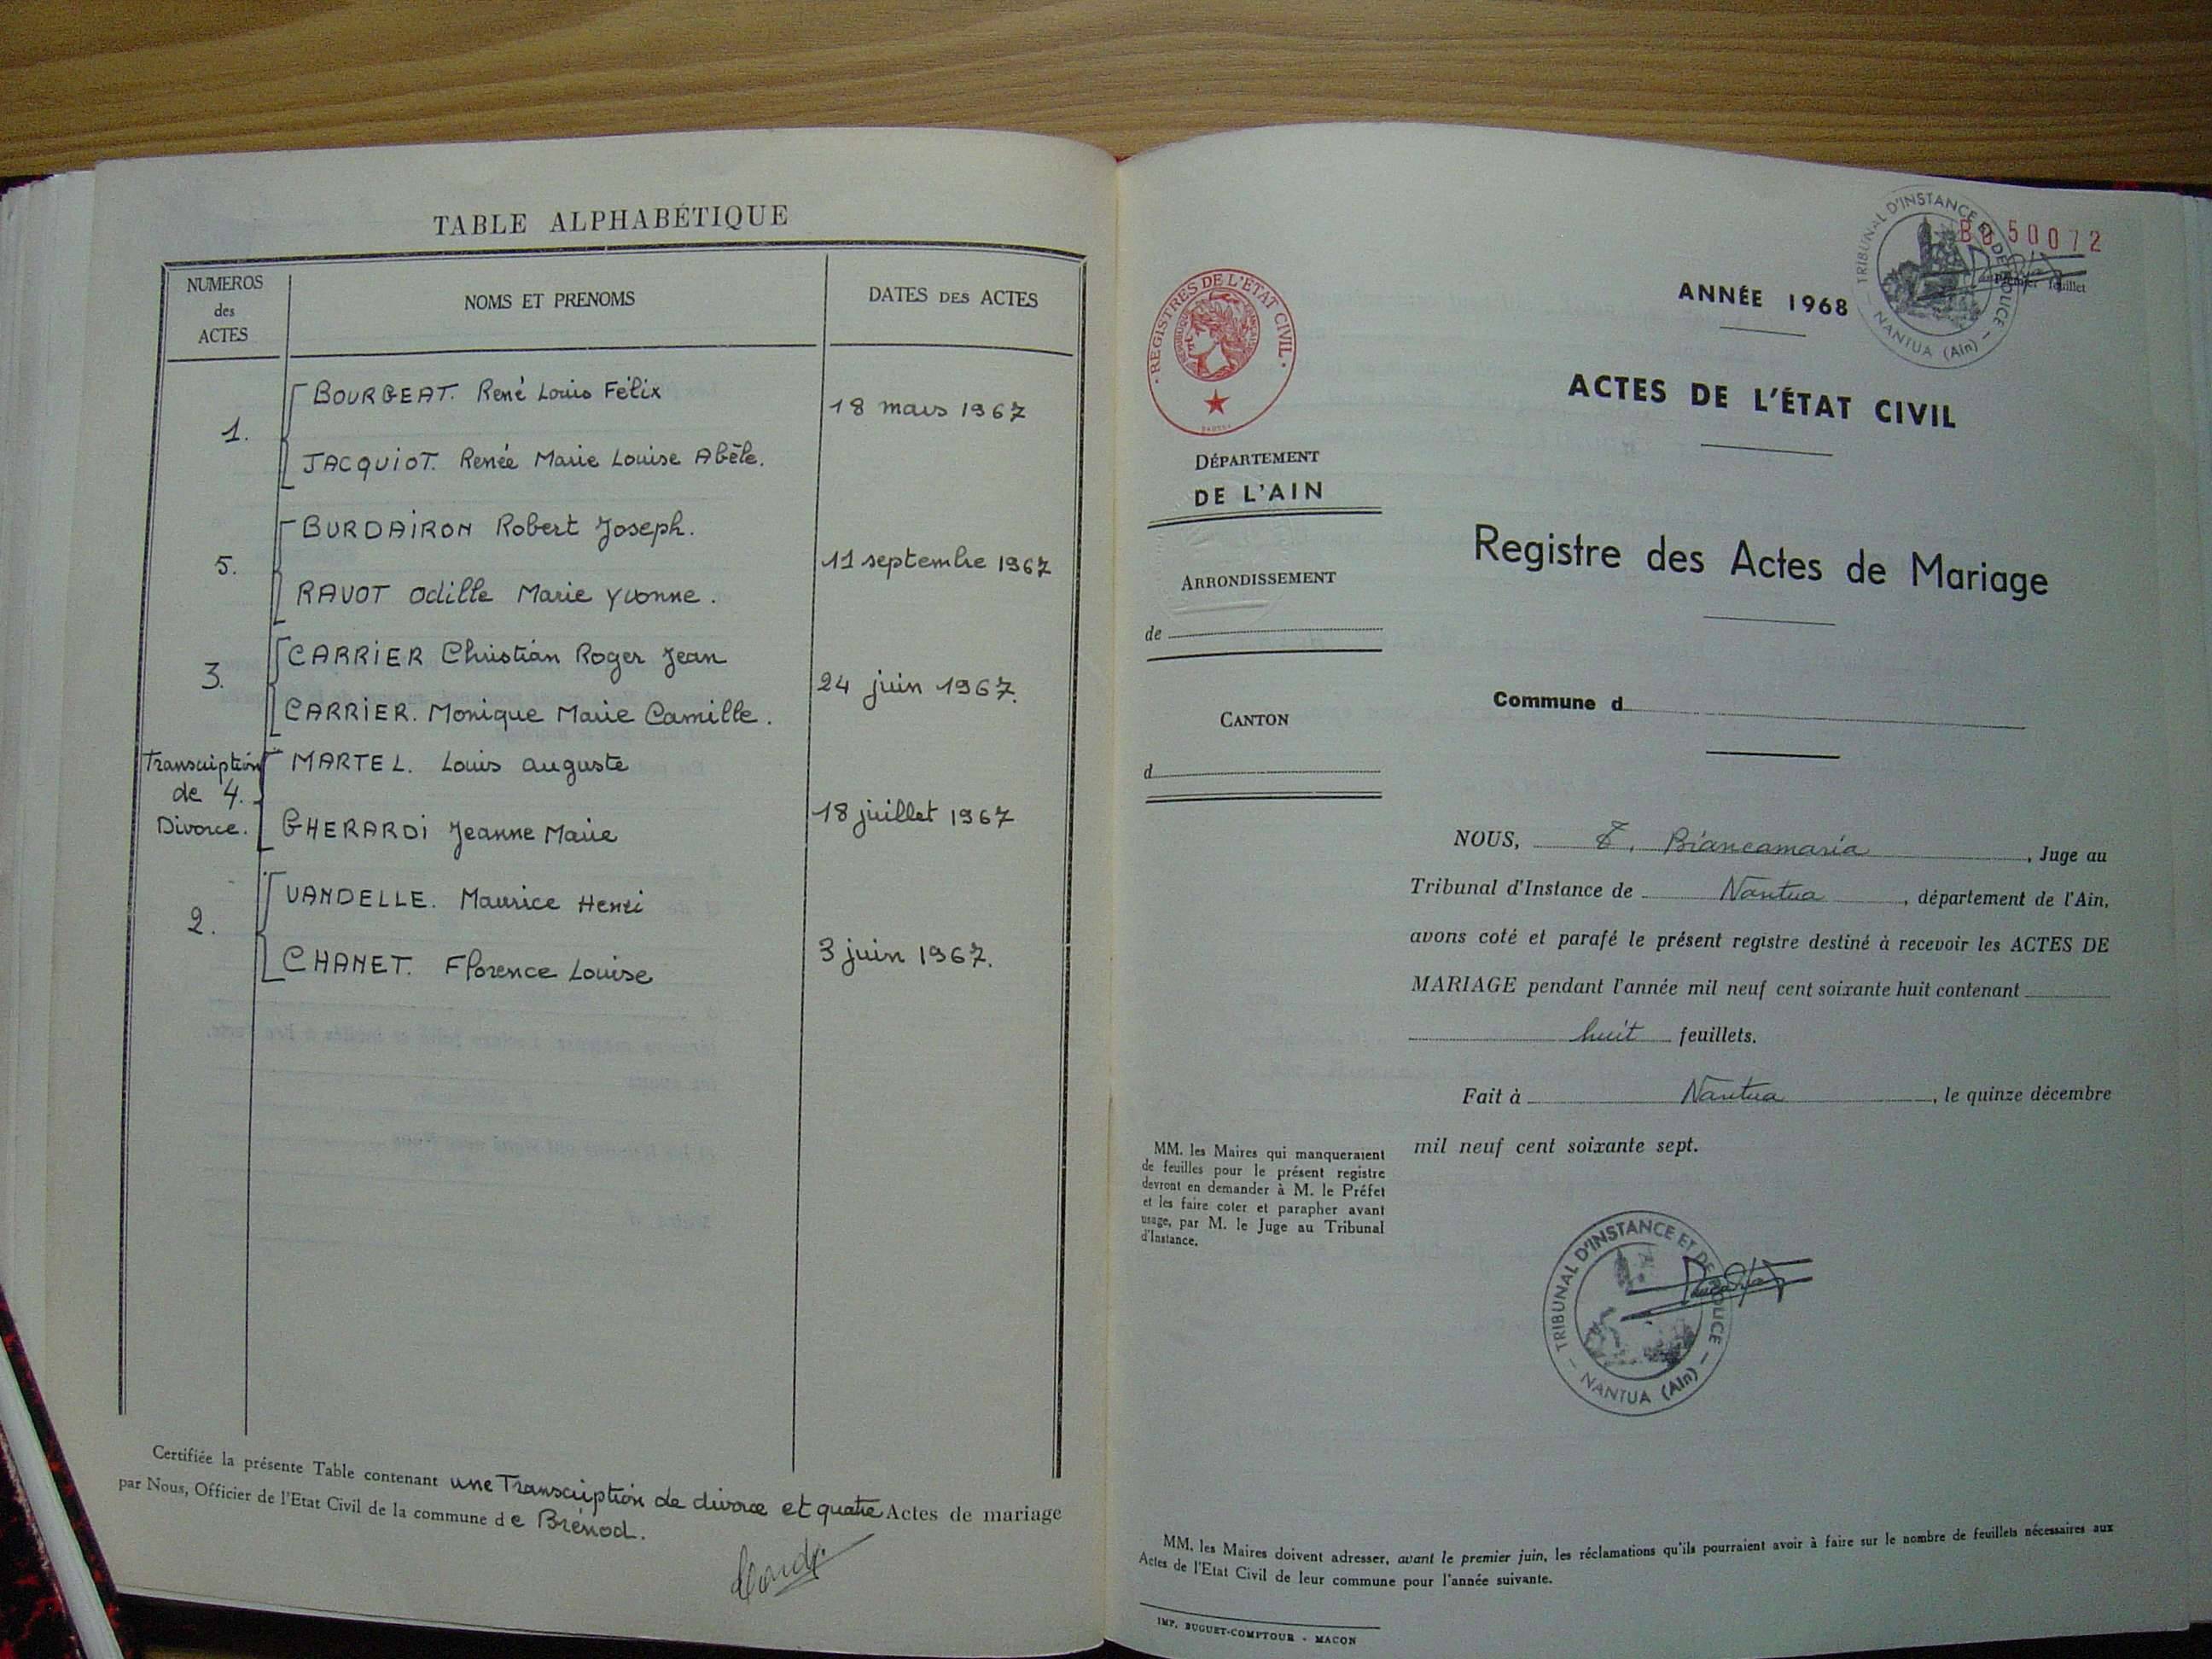 TABLE ALPHABÉTIQUE
NUMEROS
des
ACTES
NOMS ET PRENOMS
DATES DES ACTES
1.
BOURGEAT. René Louis Félix
18 mars 1967
JACQUIOT. Renée Marie Louise Abèle.
5.
BURDAIRON Robert Joseph.
11 septembre 1967
RAVOT Odille Marie Yvonne.
3.
CARRIER Christian Roger Jean
24 juin 1967.
CARRIER. Monique Marie Camille.
Transcription
de 4.
Divorce.
MARTEL. Louis Auguste
18 juillet 1967
GHERARDI Jeanne Marie
2.
VANDELLE. Maurice Henri
3 juin 1967.
CHANET. Florence Louise
Certifiée la présente Table contenant une Transcription de divorce et quatre Actes de mariage
par Nous, Officier de l'Etat Civil de la commune de Brénod.
REGISTRES DE L'ÉTAT CIVIL
RÉPUBLIQUE FRANÇAISE
TRIBUNAL D'INSTANCE ET DE POLICE
NANTUA (Ain)
50072
Premier feuillet
ANNÉE 1968
ACTES DE L'ÉTAT CIVIL
DÉPARTEMENT
DE L'AIN
ARRONDISSEMENT
de
CANTON
d
Registre des Actes de Mariage
Commune d
NOUS, Biancamaria, Juge au
Tribunal d'Instance de Nantua, département de l'Ain,
avons coté et parafé le présent registre destiné à recevoir les ACTES DE
MARIAGE pendant l'année mil neuf cent soixante huit contenant
huit feuillets.
Fait à Nantua, le quinze décembre
mil neuf cent soixante sept.
MM. les Maires qui manqueraient
de feuilles pour le présent registre
devront en demander à M. le Préfet
et les faire coter et parapher avant
usage, par M. le Juge au Tribunal
d'Instance.
TRIBUNAL D'INSTANCE ET DE POLICE
NANTUA (Ain)
MM. les Maires doivent adresser, avant le premier juin, les réclamations qu'ils pourraient avoir à faire sur le nombre de feuillets nécessaires aux
Actes de l'Etat Civil de leur commune pour l'année suivante.
IMP. BUGUET-COMPTOUR - MACON